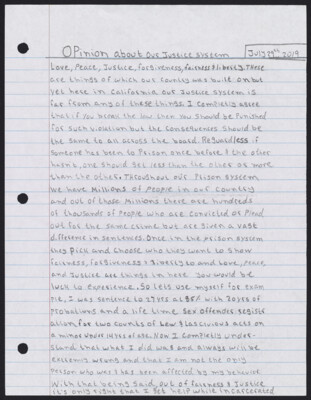 OPinion about our Justice System
July 29th 2019
Love, Peace, Justice, forgiveness, fairness & liberty. These
are things of which our country was built on but
yet here in California our Justice system is
far from any of these things. I completly agree
that if you break the law then you should be Punished
for such violation but the consequences should be
the same to all across the board. Reguardless if
someone has been to Prison once before & the other
hasn't, one should get less than the other as more
than the other. Throughout our Prison system
we have Millions of People in our country
and out of those Millions there are hundreds
of thousands of People who are convicted or Plead
out for the same crime but are given a vast
difference in sentences. Once in the Prison system
they Pick and choose who they want to show
fairness, forgiveness & liberty to and Love, Peace,
and Justice are things in here you would be
luck to experience. So lets use myself for exam
ple, I was sentence to 17yrs at 85% with 20yrs of
Probations and a life time sex offender regist
ation, for two counts of lewd & lascivious acts on
a minor under 14yrs of age. Now I completly unde-
stand that what I did was and always will be
extremly wrong and that I am not the only
Person who was & has been affected by my behavior.
With that being said, out of fairness & Justice
it's only right that I get help while incarcerated